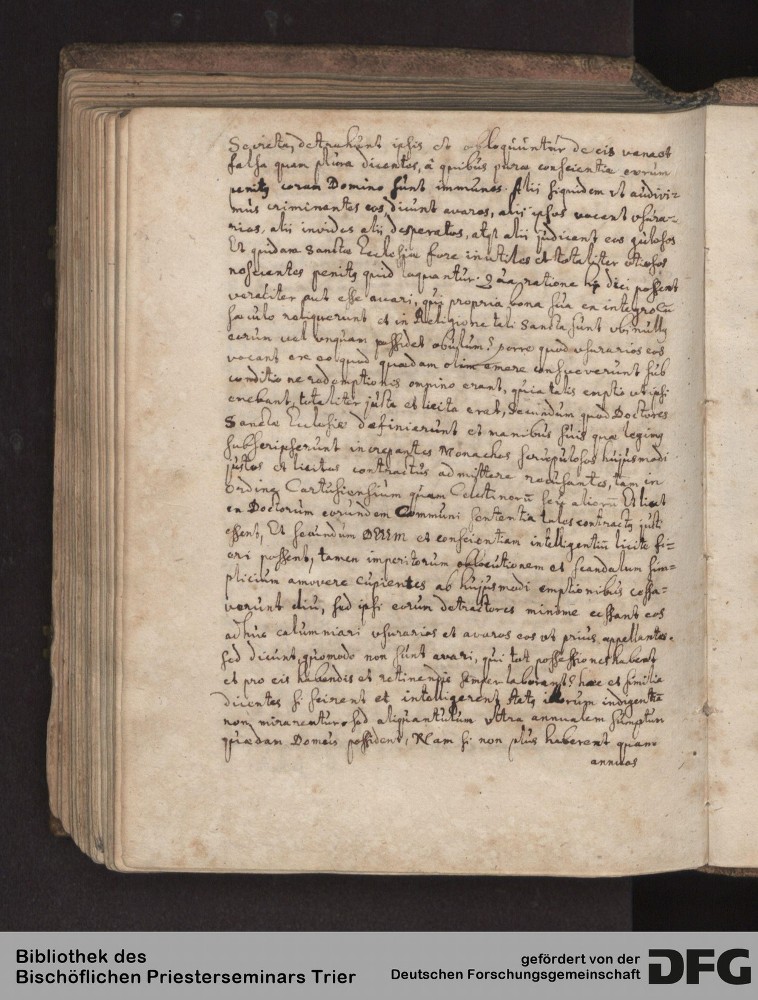 Societa, detrahunt ipsis et obloquuntur de eis vana et
falsa quam plura dicentes, à quibus puræ conscientiæ eorum
penitq coram Domino sunt immunes. Alii siquidem ut audivi=
mus criminantes eos dicunt avaros, alii ipsos vocant usura=
rios, alii invidos alii desperatos, atq alii judicant eos gulosos
Et quidam Sanctæ Ecclesiæ fore inutiles et totaliter otiosos
nescientes penitq quid loquantur. Quâ ratione hi dici possent
veraciter aut esse avari, qui propria bona sua ex integro cū
sæculo reliquerunt et in Religione tali Sancta sunt ubi nullq
eorum vel unquam possidet obulum? porro quod usurarios eos
vocant ex eo quod quædam olim emere consueverunt sub
conditione redemptionis omnino erant, quia talis emptio ut ipsi
credebant, totaliter justa et licita erat, Secundum quod Doctores
Sanctæ Ecclesiæ definierunt et manibus suis qua legimq
subscripserunt increpantes Monachos scrupulosos hujusmodi
justos et licitos contractus admittere recusantes, tam in
Ordine Cartusiensium quam Celestinorū seu aliorū Et licet
ex Doctorum eorundem Communi sententia tales contractq justi
essent, Et secundum DEUM et conscientiam intelligentiū licite fi=
eri possent, tamen imperitorum oblocutionem et scandalum sim=
plicium amovere cupientes ab hujusmodi emptionibus cessa=
verunt diu, sed ipsi eorum detractores minime cessant eos
adhuc calumniari usurarios et avaros eos ut prius appellantes.
sed dicunt, quomodo non sunt avari, qui tot possessiones habent
et pro eis habendis et retinendis semper laborant? hæc et similia
dicentes si scirent et intelligerent statq illorum indigentia
non mirarentur sed aliquantulum ultra annualem sumptum
quædam Domus possident, Nam si non plus haberent quam
annuos
Bibliothek des
Bischöflichen Priesterseminars Trier
gefördert von der
Deutschen Forschungsgemeinschaft
DFG